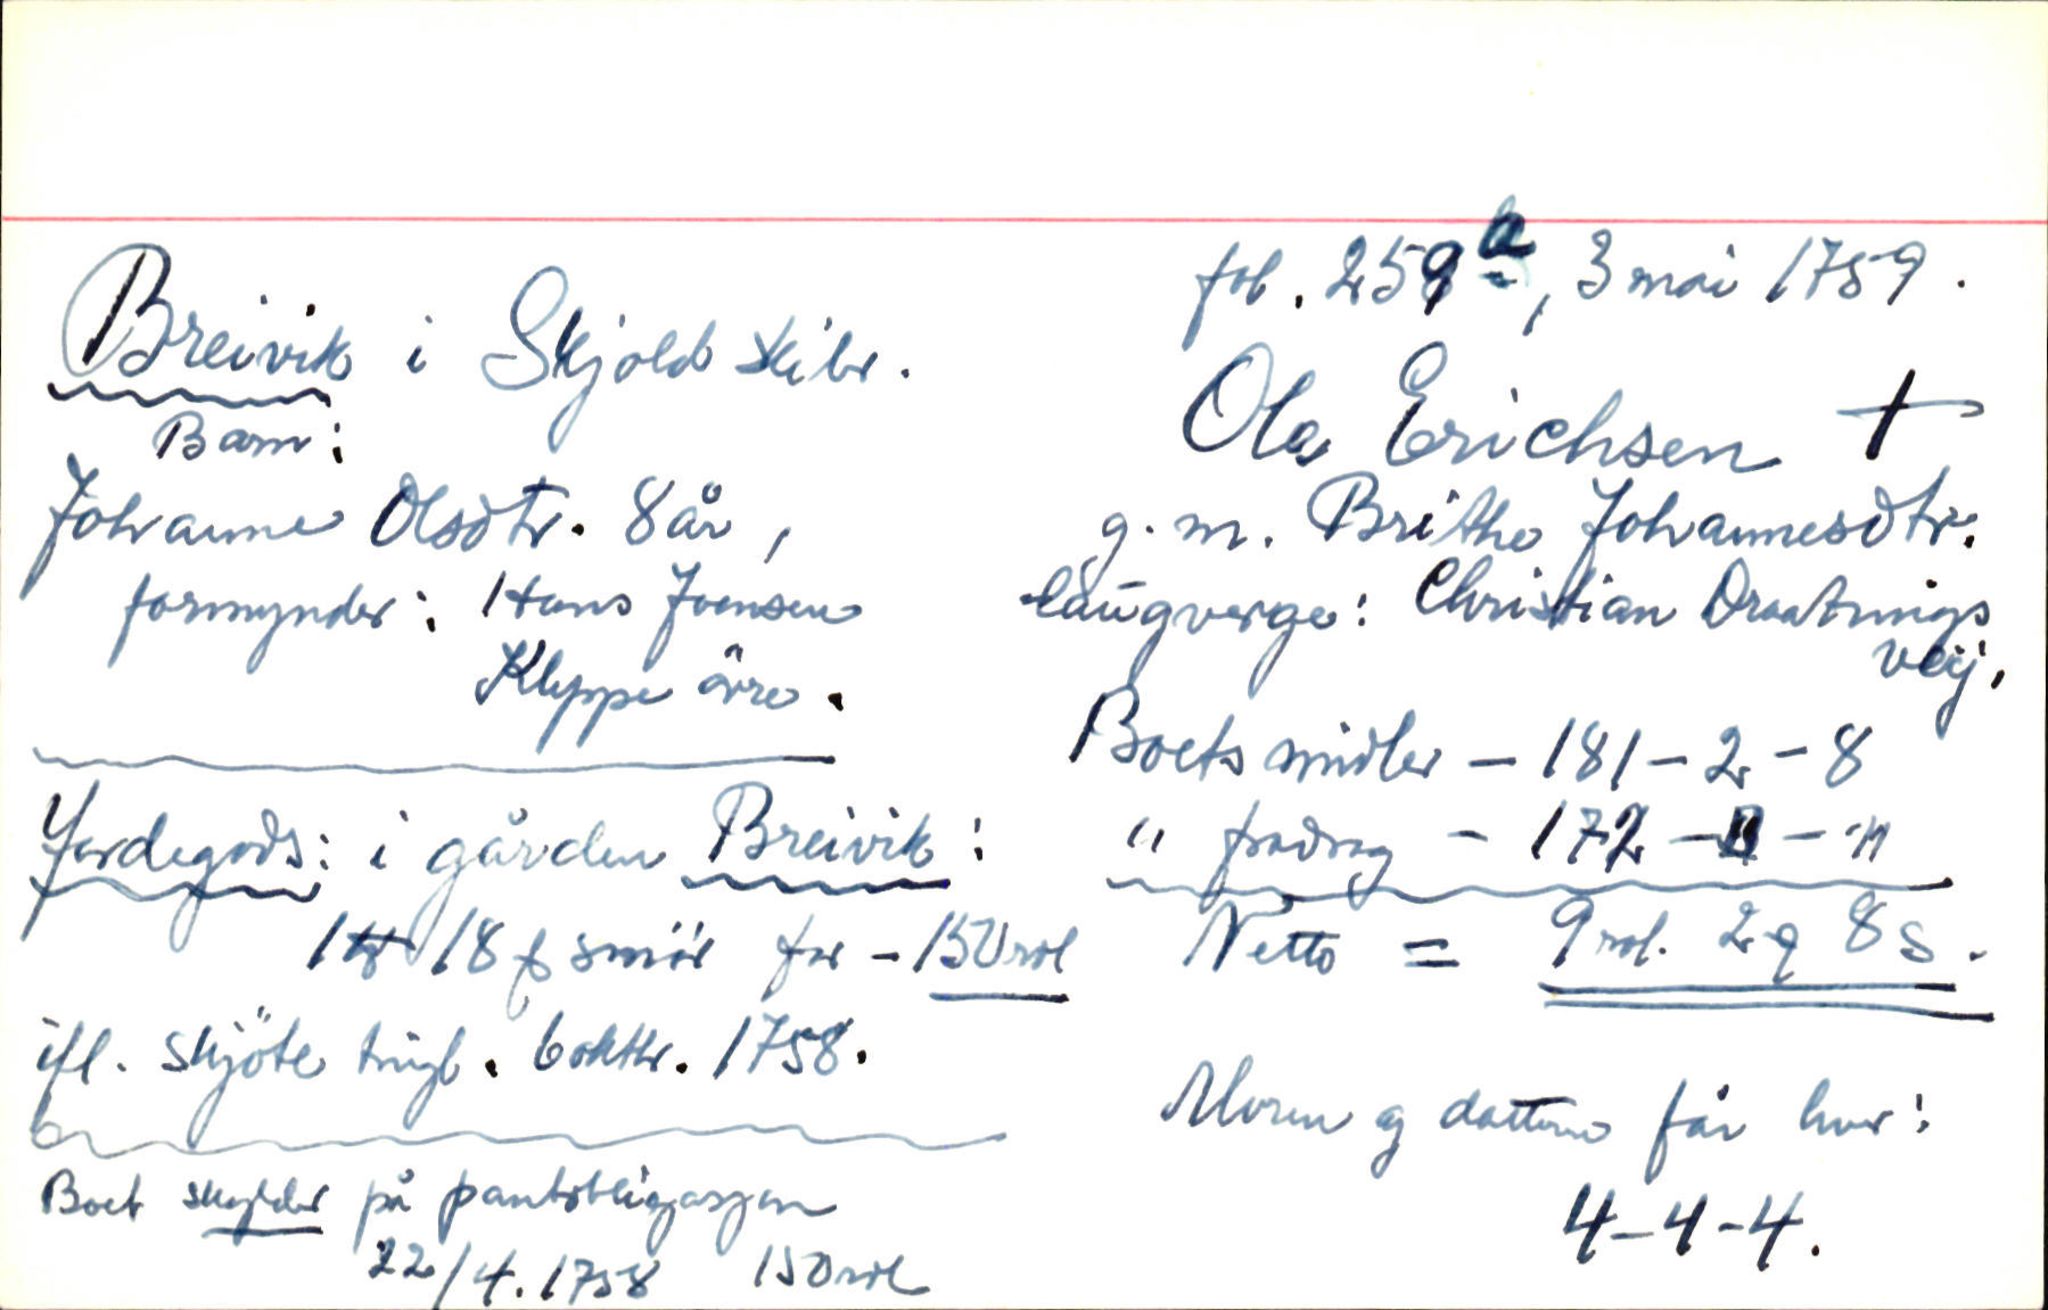 Breivik i Skjold skibr.
Barn:
Johanne Olsdtr. 8 år,
formynder: Hans Joensen
Kleppe övre.
Jordegods: i gården Breivik:
1 18 smör for - 150 rdl
ifl. skjöte tingl. 6 oktbr. 1758.
Boet skylder på pantobligasjon
22/4. 1758 150 rdl
fol. 259a, 3 mai 1759.
Ola Erichsen †
g. m. Brithe Johannesdtr.
laugverge: Christian Dronnings
veij.
Boets midler - 181 - 2 - 8
" fradrag - 172 - " - "
Netto = 9 rdl. 2 q 8 s.
Moren og datteren får hver:
4-4-4.